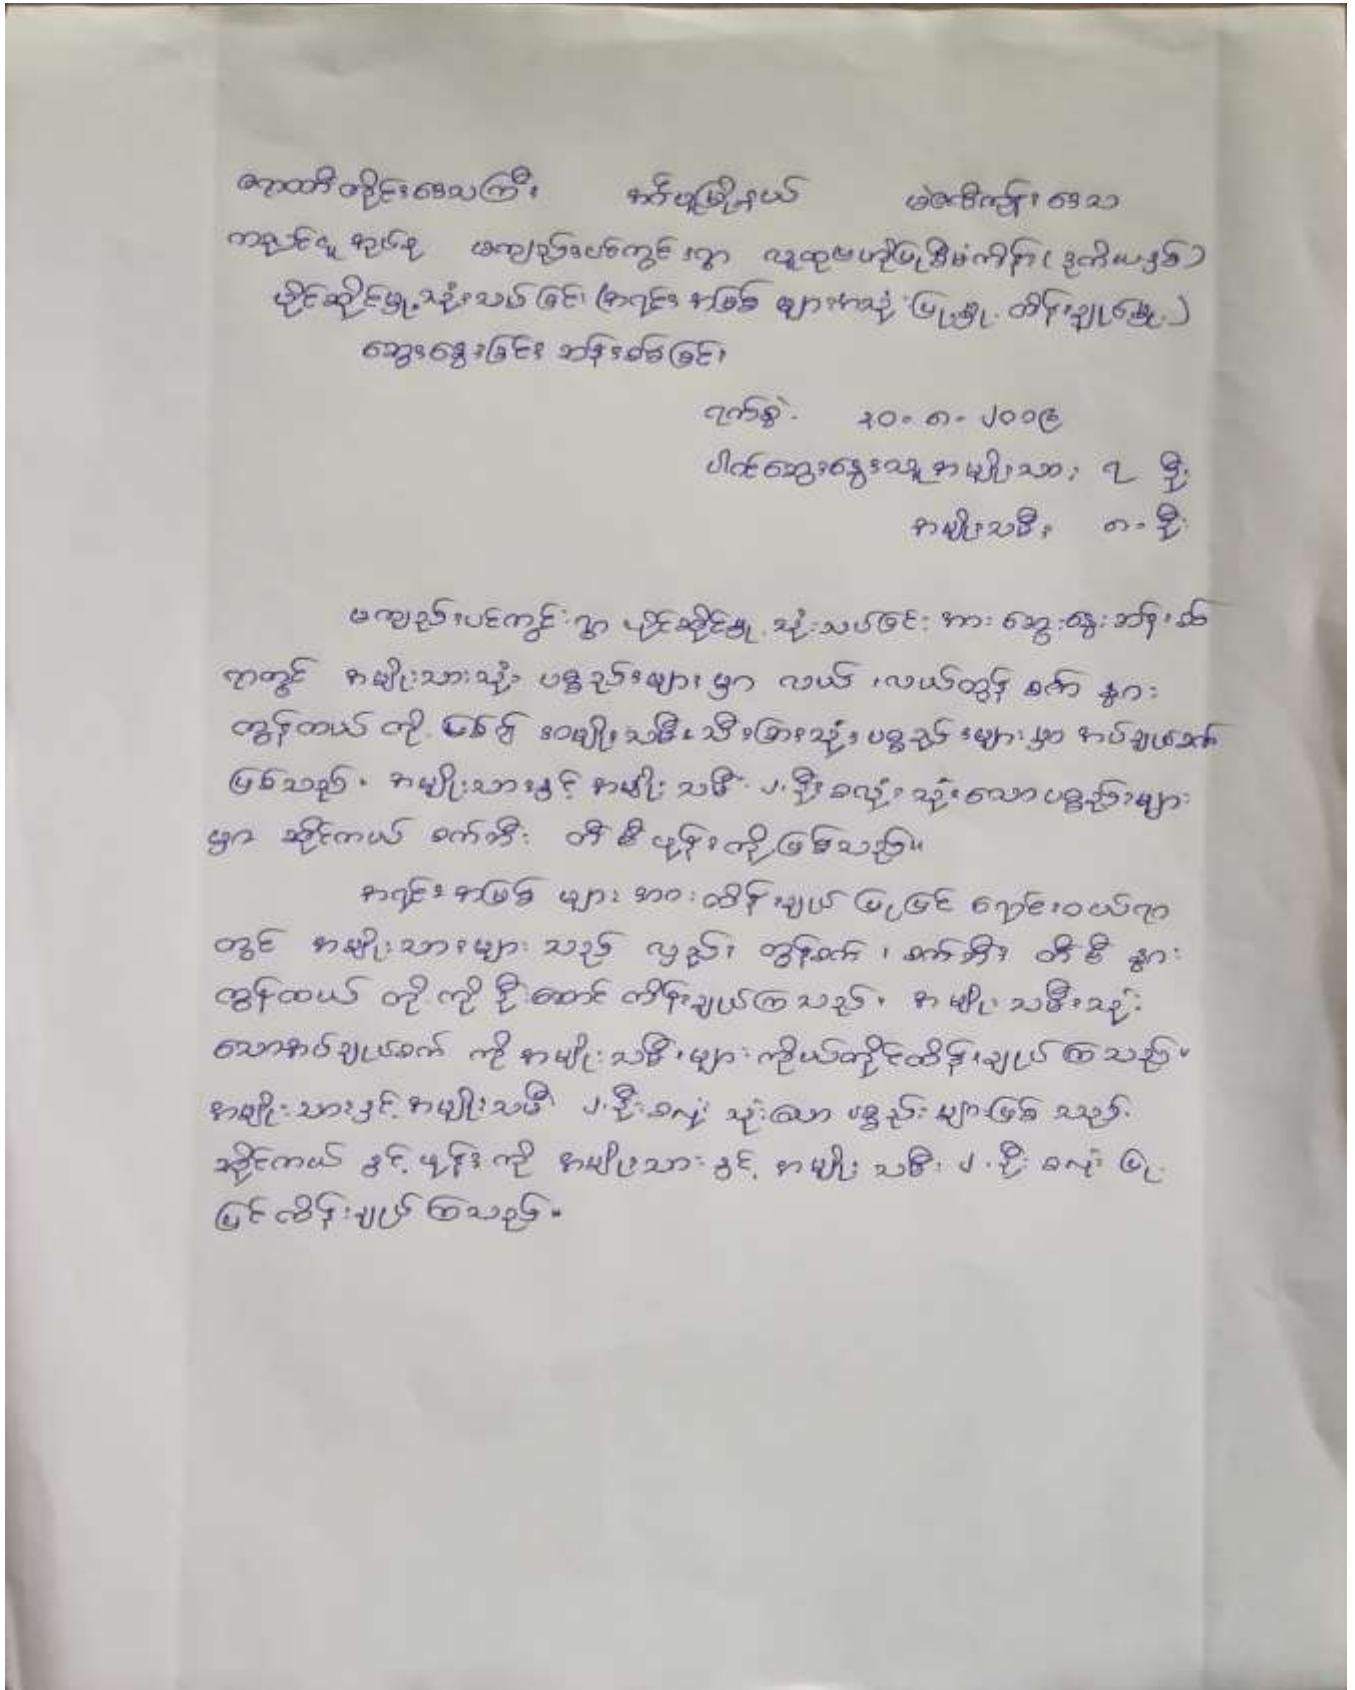 ဧရာဝတီတိုင်းဒေသကြီး အင်္ဂပူမြို့နယ် မဲဇလီကုန်းဒေသ
ကညင်ငူအုပ်စု မကျည်းပင်ကွင်းရွာ လူထုဗဟိုပြုစီမံကိန်း (ဒုတိယနှစ်)
ပိုင်ဆိုင်မှု၊ သုံးသပ်ခြင်း (အရင်းအမြစ်များအသုံးပြုမှု၊ ထိန်းချုပ်မှု)
ဆွေးနွေးခြင်း ဆန်းစစ်ခြင်း
ရက်စွဲ၊ ၃၀-၈-၂၀၁၉
ပါဝင်ဆွေးနွေးသူ အမျိုးသား ၇ ဦး
အမျိုးသမီး ၈-ဦး
မကျည်းပင်ကွင်းရွာ ပိုင်ဆိုင်မှု သုံးသပ်ခြင်းအား ဆွေးနွေးဆန်းစစ်
ရာတွင် အမျိုးသားသုံး ပစ္စည်းများမှာ လယ်၊ လယ်ထွန်စက် နွား
ထွန်တယ် တို့ ဖြစ်၍ အမျိုးသမီး သီးခြားသုံး ပစ္စည်းများမှာ အပ်ချုပ်စက်
ဖြစ်သည်။ အမျိုးသားနှင့် အမျိုးသမီး ၂ ဦးစလုံး သုံးသော ပစ္စည်းများ
မှာ ဆိုင်ကယ် စက်ဘီး တီဗီ ဖုန်းတို့ဖြစ်သည်။
အရင်းအမြစ်များအား ထိန်းချုပ် ပြုပြင် ရောင်းဝယ်ရာ
တွင် အမျိုးသားများသည် လှည်း၊ ထွန်စက်၊ စက်ဘီး တီဗီ နွား
ထွန်ထယ် တို့ကို ဦးဆောင် ထိန်းချုပ်ကြသည်။ အမျိုးသမီးသုံး
သောအပ်ချုပ်စက် ကို အမျိုးသမီးများ ကိုယ်တိုင်ထိန်းချုပ်ကြသည်။
အမျိုးသားနှင့် အမျိုးသမီး ၂ ဦးစလုံး သုံးသော ပစ္စည်းများဖြစ်သည့်
ဆိုင်ကယ် နှင့် ဖုန်းကို အမျိုးသားနှင့် အမျိုးသမီး ၂ ဦးစလုံး ပြု
ပြင် ထိန်းချုပ်ကြသည်။